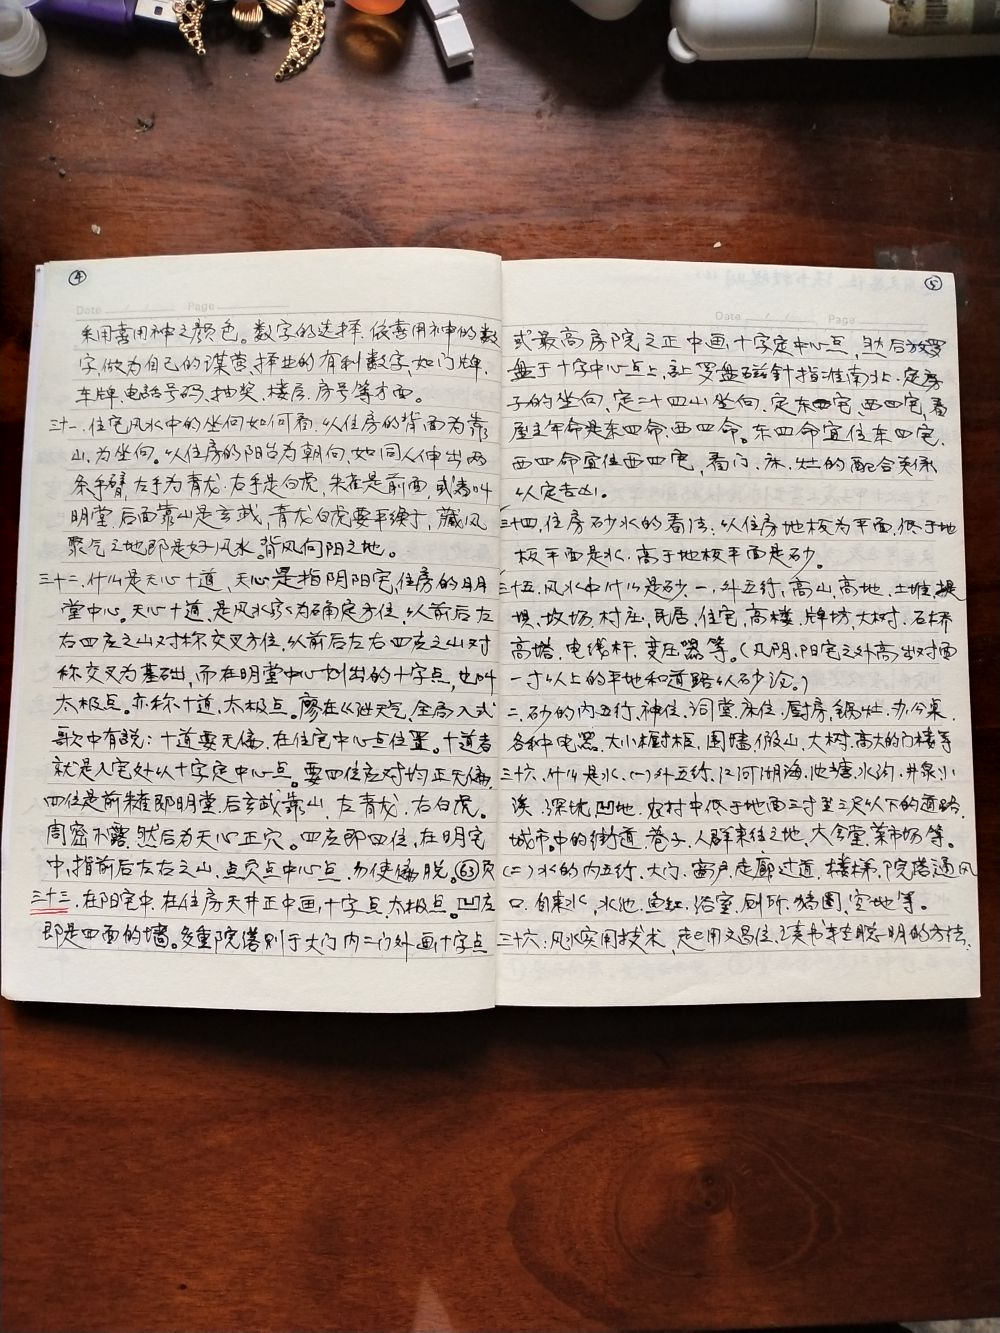 ④
Date / / Page
采用喜用神之颜色。数字的选择.依喜用神的数
字做为自己的谋营.择业的有利数字,如门牌.
车牌.电話号码.抽奖.楼层.房号等方面。
三十一.住宅风水中的坐向如何看.以住房的背面为靠
山.为坐向。以住房的阳台为朝向,如同人伸出两
条手臂,左手为青龙.右手是白虎,朱雀是前面,或者叫
明堂.后面靠山是玄武,青龙白虎要平缓于,藏风
聚气之地即是好风水.背风向阳之地。
三十二.什么是天心十道、天心是指阴阳宅,住房的明
堂中心.天心十道.是风水家为确定方位,以前后左
右四应之山对称交叉方位,从前后左右四应之山对
称交叉为基础,而在明堂中心划出的十字点,也叫
太极点。亦称十道.太极点。廖在《泄天气,全局入式
歌中有説:十道要无偏,在住宅中心点位置。十道者
就是入宅处以十字定中心点。要四位应对均正无偏,
四位是前朱雀即明堂.后玄武靠山.左青龙.右白虎。
周密不露.然后为天心正穴。四应即四位,在明宅
中,指前后左右之山.点穴点中心点.勿使偏脱。63页
三十三.在阳宅中.在住房天井正中画,十字点.太极点。凹应
即是四面的墙。多重院落则于大门内二门外画十字点
⑤
Date / / Page
或最高房院之正中画十字定中心点,然后放罗
盘于十字中心点上,让罗盘磁針指准南北.定房
子的坐向.定二十四山坐向.定东四宅.西四宅,看
屋主年命是东四命.西四命。东四命宜住东四宅.
西四命宜住西四宅,看门.床.灶的配合关系
以定吉凶。
三十四.住房砂水的看法.以住房地板为平面.低于地
板平面是水.高于地板平面是砂。
三十五.风水中什么是砂.一.外五行,高山,高地.土堆.堤
坝.坟场.村庄.民居.住宅.高楼.牌坊.大树.石桥
高塔.电线杆.变压器等。(凡阴.阳宅之外高出对面
一寸以上的平地和道路以砂论。)
二.砂的内五行.神位.祠堂.床位.厨房.锅灶.办公桌.
各种电器.大小橱柜.围墙.假山.大树.高大的门楼等
三十六.什么是水.(一)外五行.江河湖海.池塘.水沟.井泉.小
溪.深坑.凹地.农村中低于地面三寸至三尺以下的道路.
城市中的街道.巷子.人群来往之地.大会堂.菜市场等。
(二)水的内五行.大门.窗户.走廊.过道.楼梯.院落.通风
口.自来水,水池.鱼缸.浴室.厕所.猪圈.空地等。
三十六:风水实用技术.起用文昌位.读书聪明的方法.